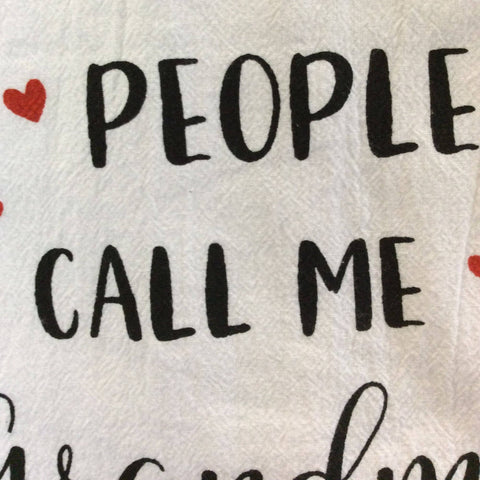 PEOPLE
CALL ME